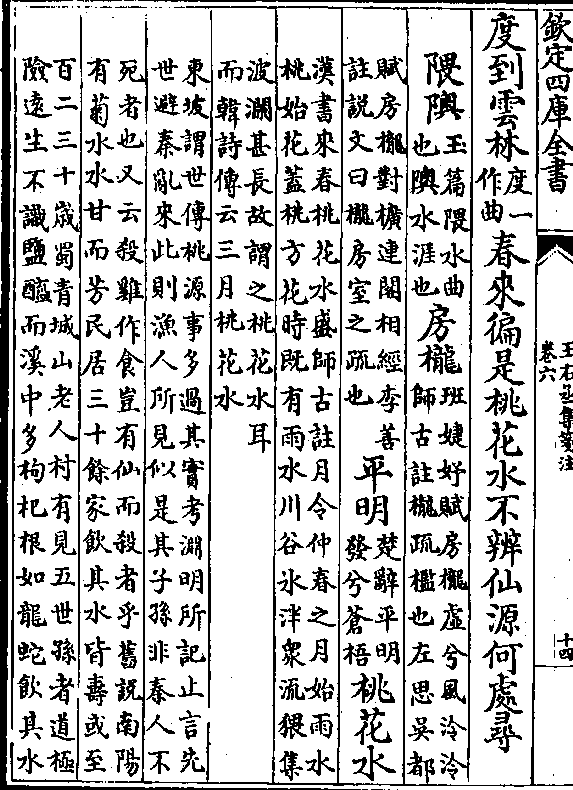 欽定四庫全書
王右丞集箋注
卷六
十四
度到雲林度一作曲春來徧是桃花水不辨仙源何處尋
隈隩玉篇隈水曲也隩水涯也房櫳班婕妤賦房櫳虛兮風泠泠師古註櫳疏檻也左思吳都
賦房櫳對櫎連閣相經李善註說文曰櫳房室之疏也平明楚辭平明發兮蒼梧桃花水
漢書來春桃花水盛師古註月令仲春之月始雨水
桃始花蓋桃方花時既有雨水川谷冰泮衆流猥集
波瀾甚長故謂之桃花水耳
而韓詩傳云三月桃花水
東坡謂世傳桃源事多過其實考淵明所記止言先
世避秦亂來此則漁人所見似是其子孫非秦人不
死者也又云殺雞作食豈有仙而殺者乎舊說南陽
有菊水水甘而芳民居三十餘家飲其水皆壽或至
百二三十歲蜀青城山老人村有見五世孫者道極
險遠生不識鹽醯而溪中多枸杞根如龍蛇飲其水